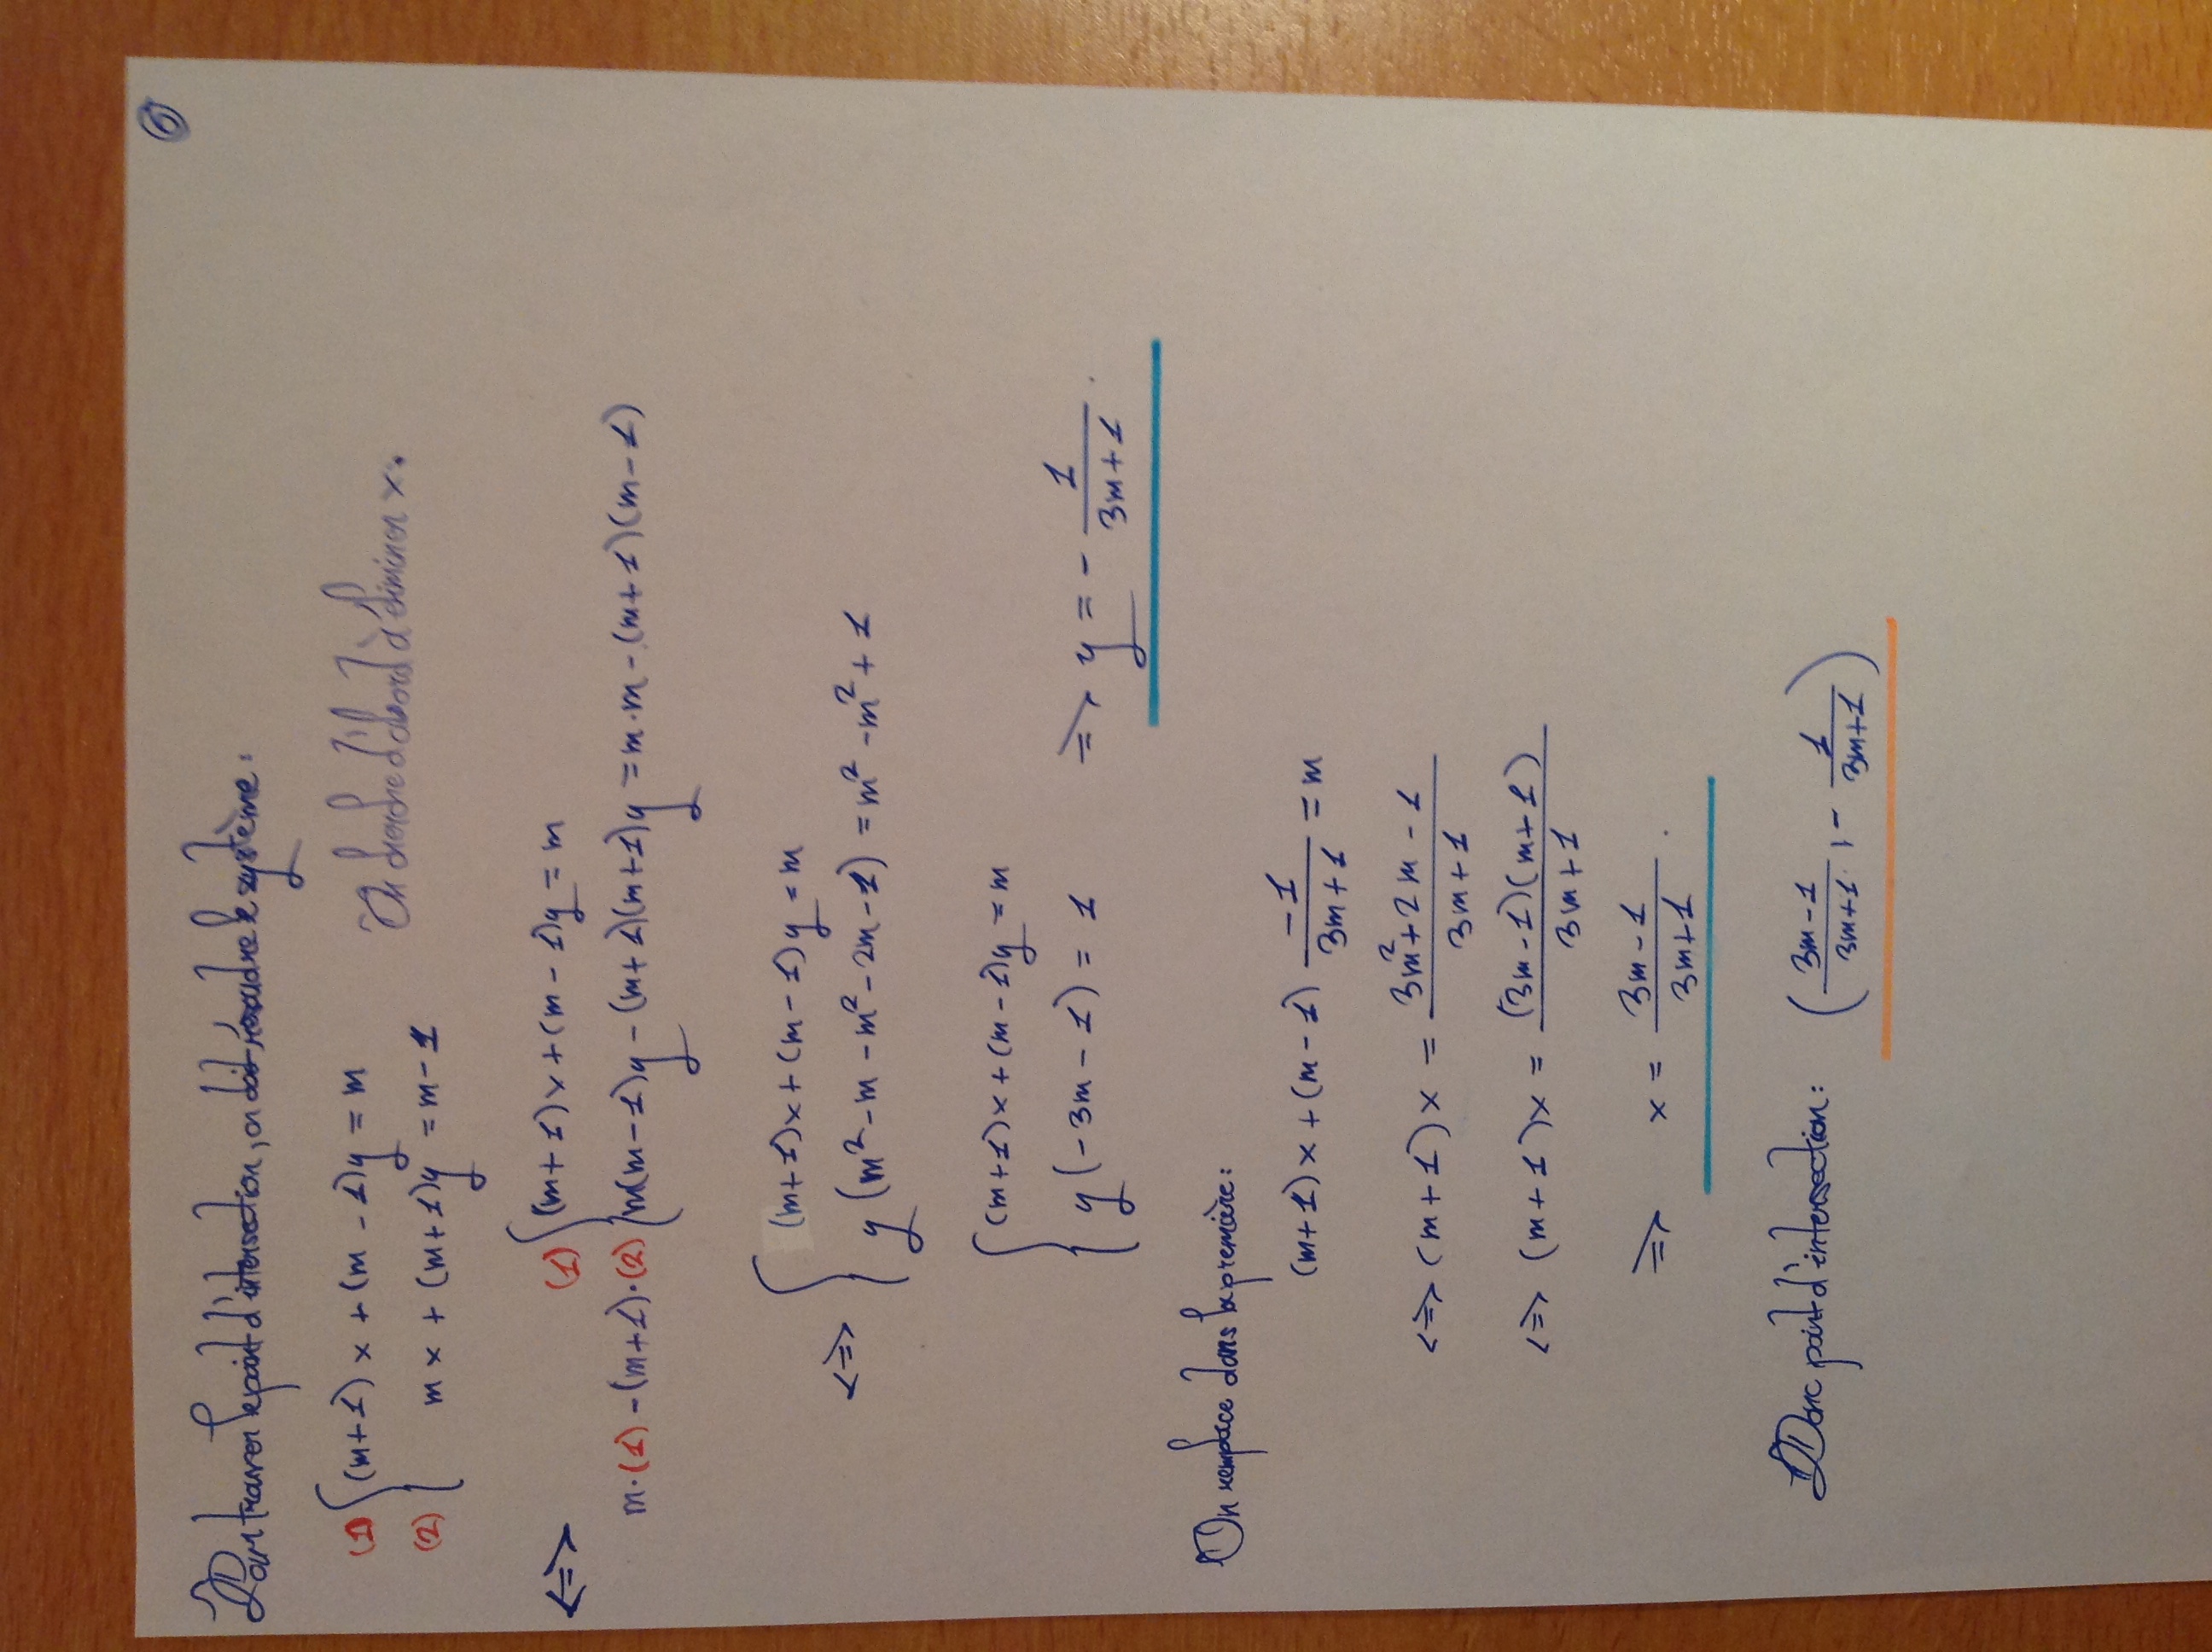 6
Pour trouver le point d'intersection, on doit résoudre le système :
(1) { (m+1) x + (m - 1)y = m
On cherche d'abord à éliminer x.
(2) { m x + (m+1)y = m - 1
<=> (1) { (m+1)x + (m - 1)y = m
m·(1) - (m+1)·(2) { m(m-1)y - (m+1)(m+1)y = m·m - (m+1)(m-1)
{ (m+1)x + (m - 1)y = m
<=> { y (m² - m - m² - 2m - 1) = m² - m² + 1
{ (m+1)x + (m - 1)y = m
{ y (-3m - 1) = 1 => y = - 1/(3m+1) .
On remplace dans la première :
(m+1) x + (m - 1) -1/(3m+1) = m
<=> (m+1) x = (3m² + 2m - 1)/(3m+1)
<=> (m+1)x = (3m-1)(m+1)/(3m+1)
=> x = (3m-1)/(3m+1) .
Donc point d'intersection : ( (3m-1)/(3m+1) , - 1/(3m+1) )